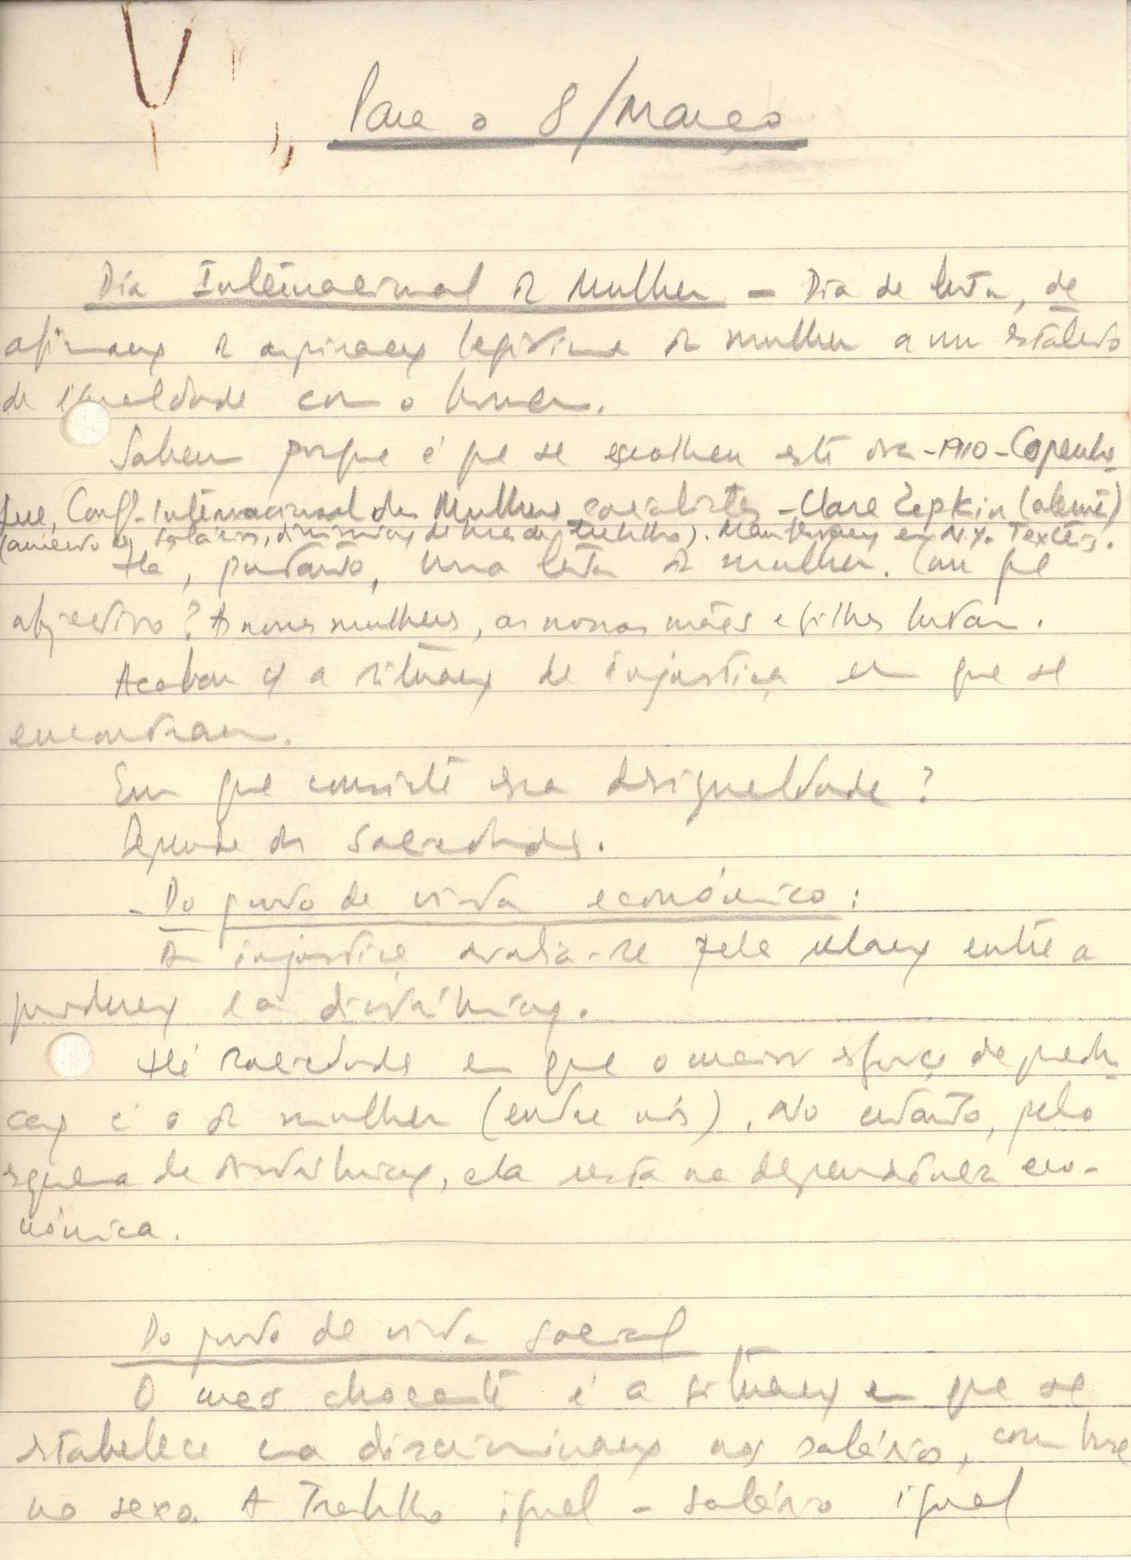 Para o 8/Março
Dia Internacional da Mulher – Dia de luta, de
afirmação da aspiração legítima da mulher a um estatuto
de igualdade com o homem.
Sabem porque é que se escolheu este dia – 1910 – Copenha-
gue, Conf. Internacional das Mulheres socialistas – Clara Zepkin (alemã)
(aumento dos salários, diminuição de horas de trabalho). Manifestação em N.Y. Textéis.
Há, portanto, uma luta da mulher. Com que
objectivo? As nossas mulheres, as nossas mães e filhas lutam.
Acabar c/ a situação de injustiça em que se
encontram.
Em que consiste essa desigualdade?
Depende das sociedades.
– Do ponto de vista económico:
A injustiça avalia-se pela relação entre a
produção e a distribuição.
Há sociedades em que o maior esforço de produ-
ção é o da mulher (entre nós). No entanto, pelo
esquema de distribuição, ela está na dependência eco-
nómica.
Do ponto de vista social
O mais chocante é a situação em que se
estabelece uma discriminação nos salários, com base
no sexo. A Trabalho igual – salário igual